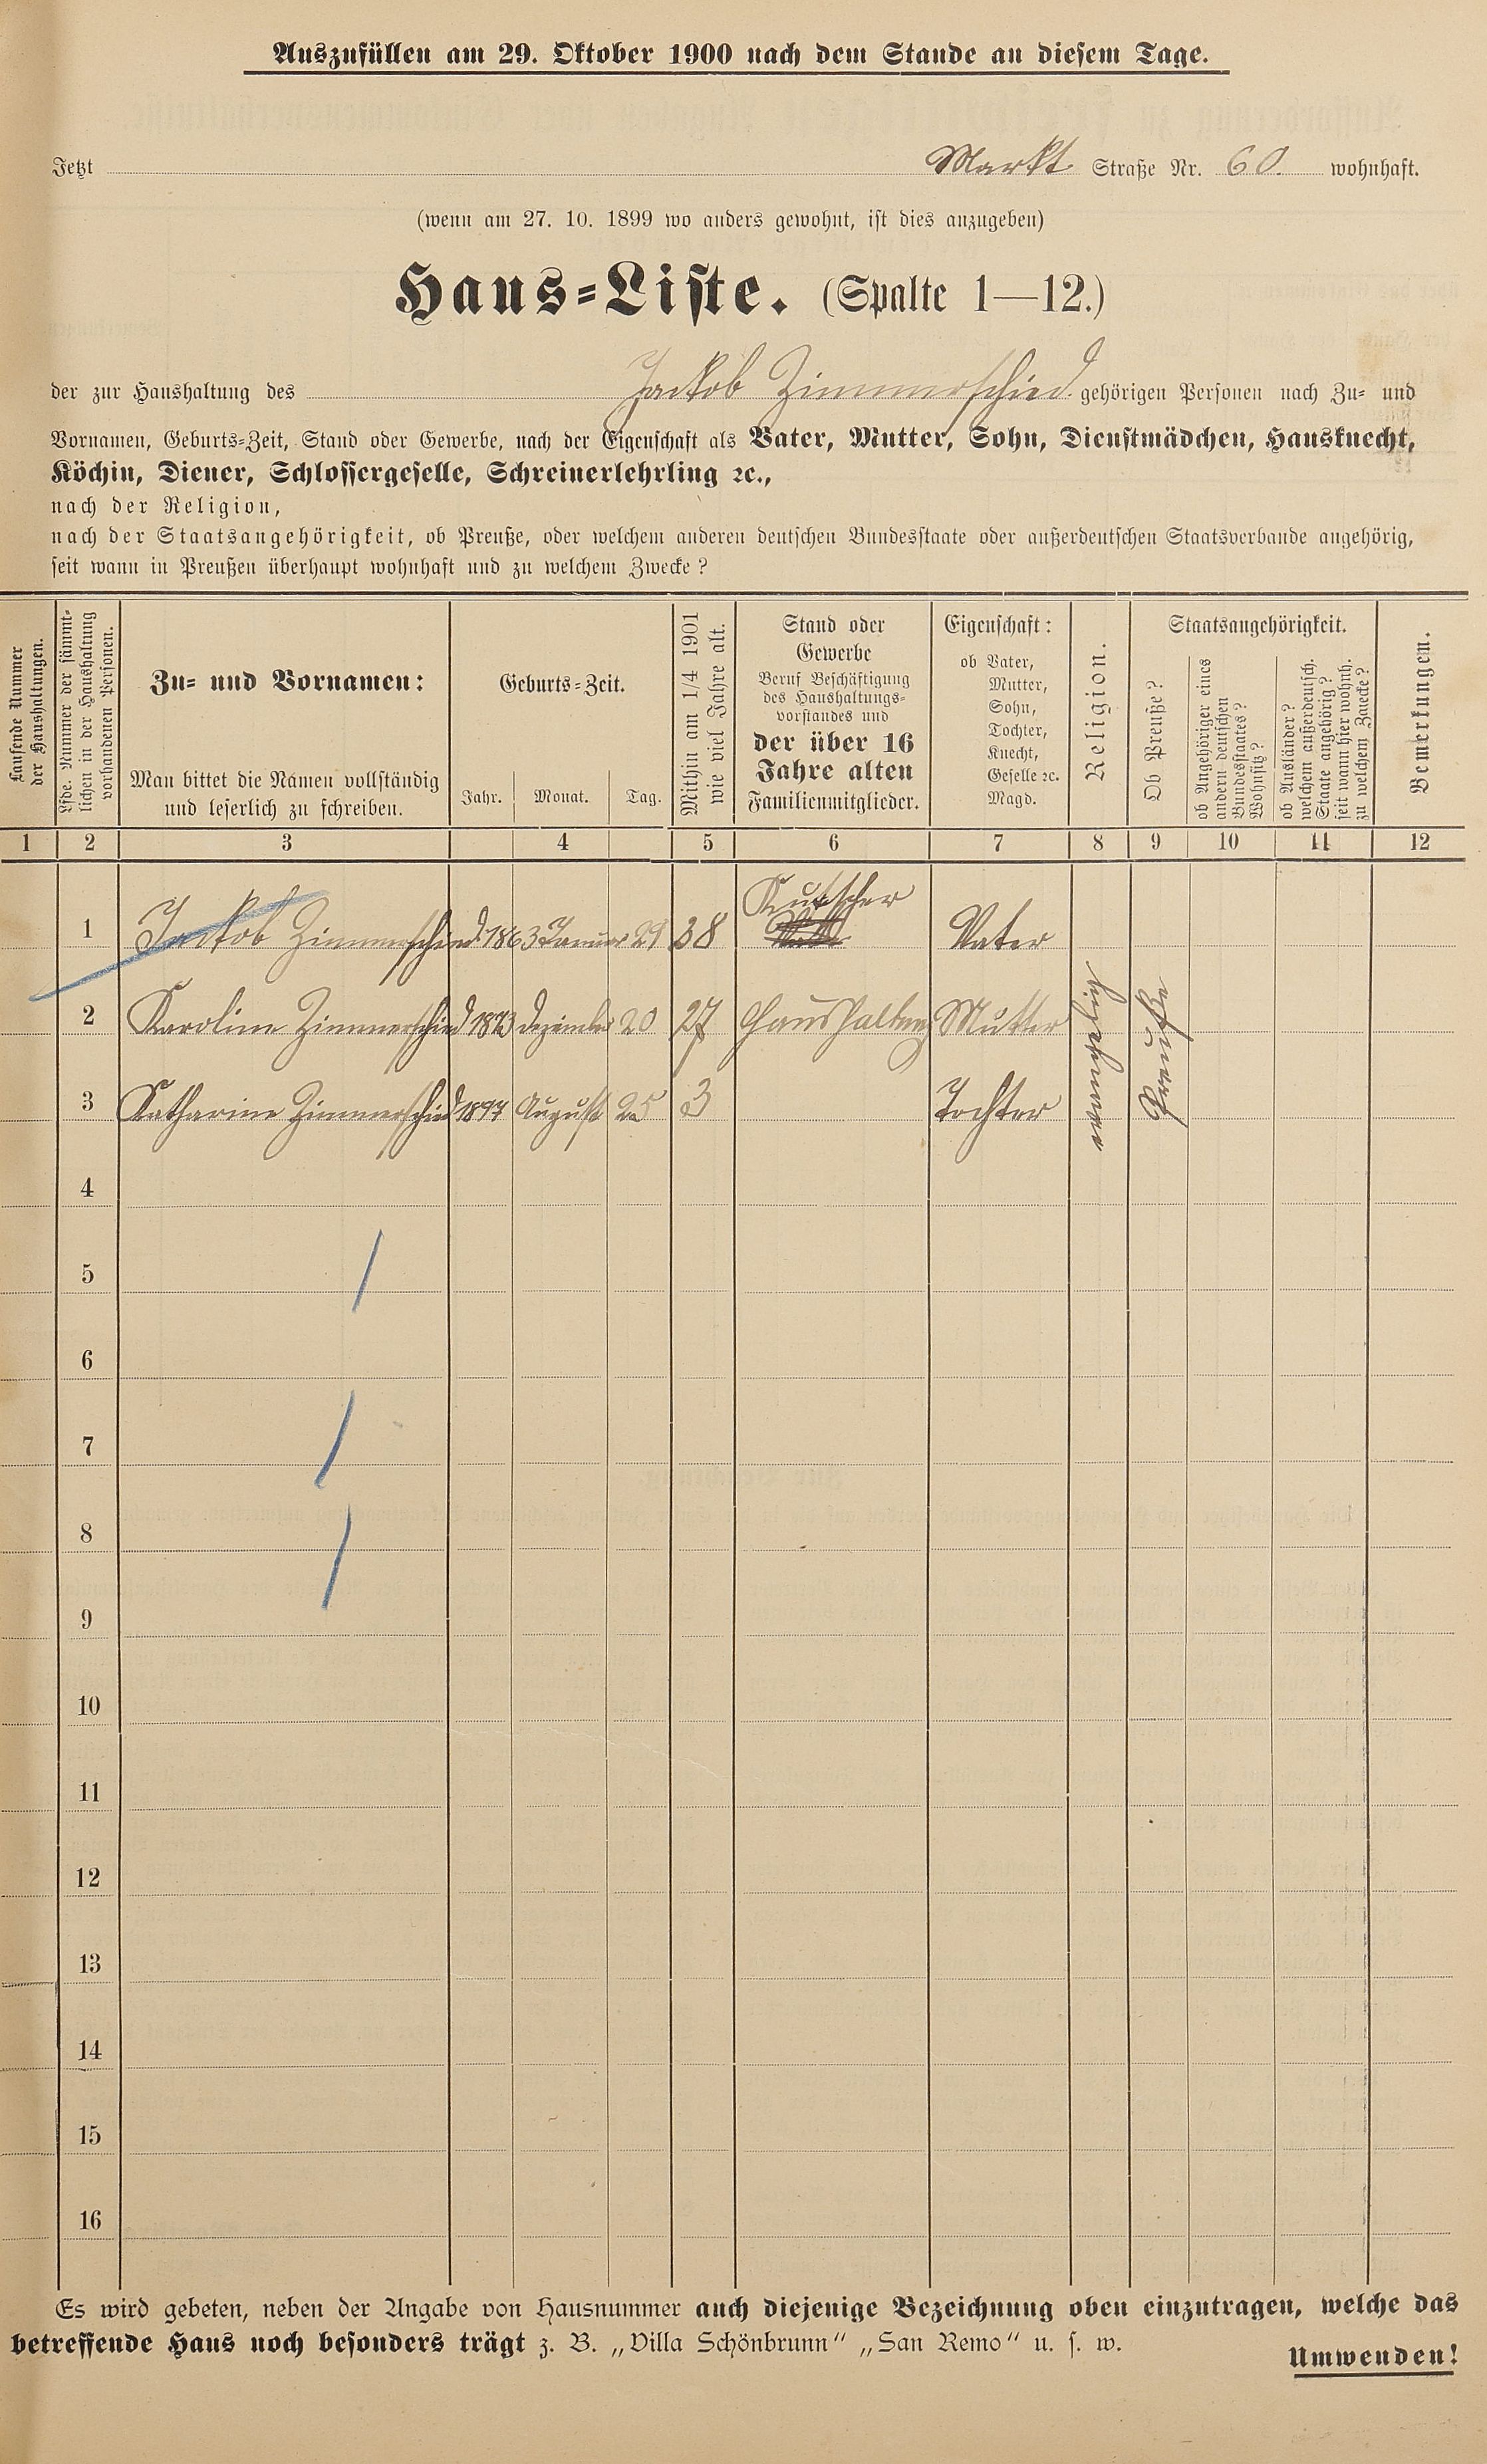 Auszufüllen am 29. Oktober 1900 nach dem Stande an diesem Tage.
Jetzt Markt Straße Nr. 60. wohnhaft.
(wenn am 27. 10. 1899 wo anders gewohnt, ist dies anzugeben)
Haus-Liste. (Spalte 1—12.)
der zur Haushaltung des Jackob Zimmerschied gehörigen Personen nach Zu- und
Vornamen, Geburts-Zeit, Stand oder Gewerbe, nach der Eigenschaft als Vater, Mutter, Sohn, Dienstmädchen, Hausknecht,
Köchin, Diener, Schlossergeselle, Schreinerlehrling ꝛc.,
nach der Religion,
nach der Staatsangehörigkeit, ob Preuße, oder welchem anderen deutschen Bundesstaate oder außerdeutschen Staatsverbande angehörig,
seit wann in Preußen überhaupt wohnhaft und zu welchem Zwecke?
Laufende Nummer
der Haushaltungen.
Lfde. Nummer der sämmt-
lichen in der Haushaltung
vorhandenen Personen.
Zu- und Vornamen:
Man bittet die Namen vollständig
und leserlich zu schreiben.
Geburts-Zeit.
Jahr. Monat. Tag.
Mithin am 1/4 1901
wie viel Jahre alt.
Stand oder
Gewerbe
Beruf Beschäftigung
des Haushaltungs-
vorstandes und
der über 16
Jahre alten
Familienmitglieder.
Eigenschaft:
ob Vater,
Mutter,
Sohn,
Tochter,
Knecht,
Geselle ꝛc.
Magd.
Religion.
Staatsangehörigkeit.
Ob Preuße?
ob Angehöriger eines
andern deutschen
Bundesstaates?
Wohnsitz?
ob Ausländer?
welchem außerdeutsch.
Staate angehörig?
seit wann hier wohnh.
zu welchem Zwecke?
Bemerkungen.
1 2 3 4 5 6 7 8 9 10 11 12
1 Jackob Zimmerschied 1863 Januar 29 38 Kutscher Vater
2 Karoline Zimmerschied 1873 Dezember 20 27 Haushaltung Mutter
3 Katharine Zimmerschied 1897 August 25 3 Tochter
evangelisch
Preuße
4
5
6
7
8
9
10
11
12
13
14
15
16
Es wird gebeten, neben der Angabe von Hausnummer auch diejenige Bezeichnung oben einzutragen, welche das
betreffende Haus noch besonders trägt z. B. „Villa Schönbrunn“ „San Remo“ u. s. w.
Umwenden!